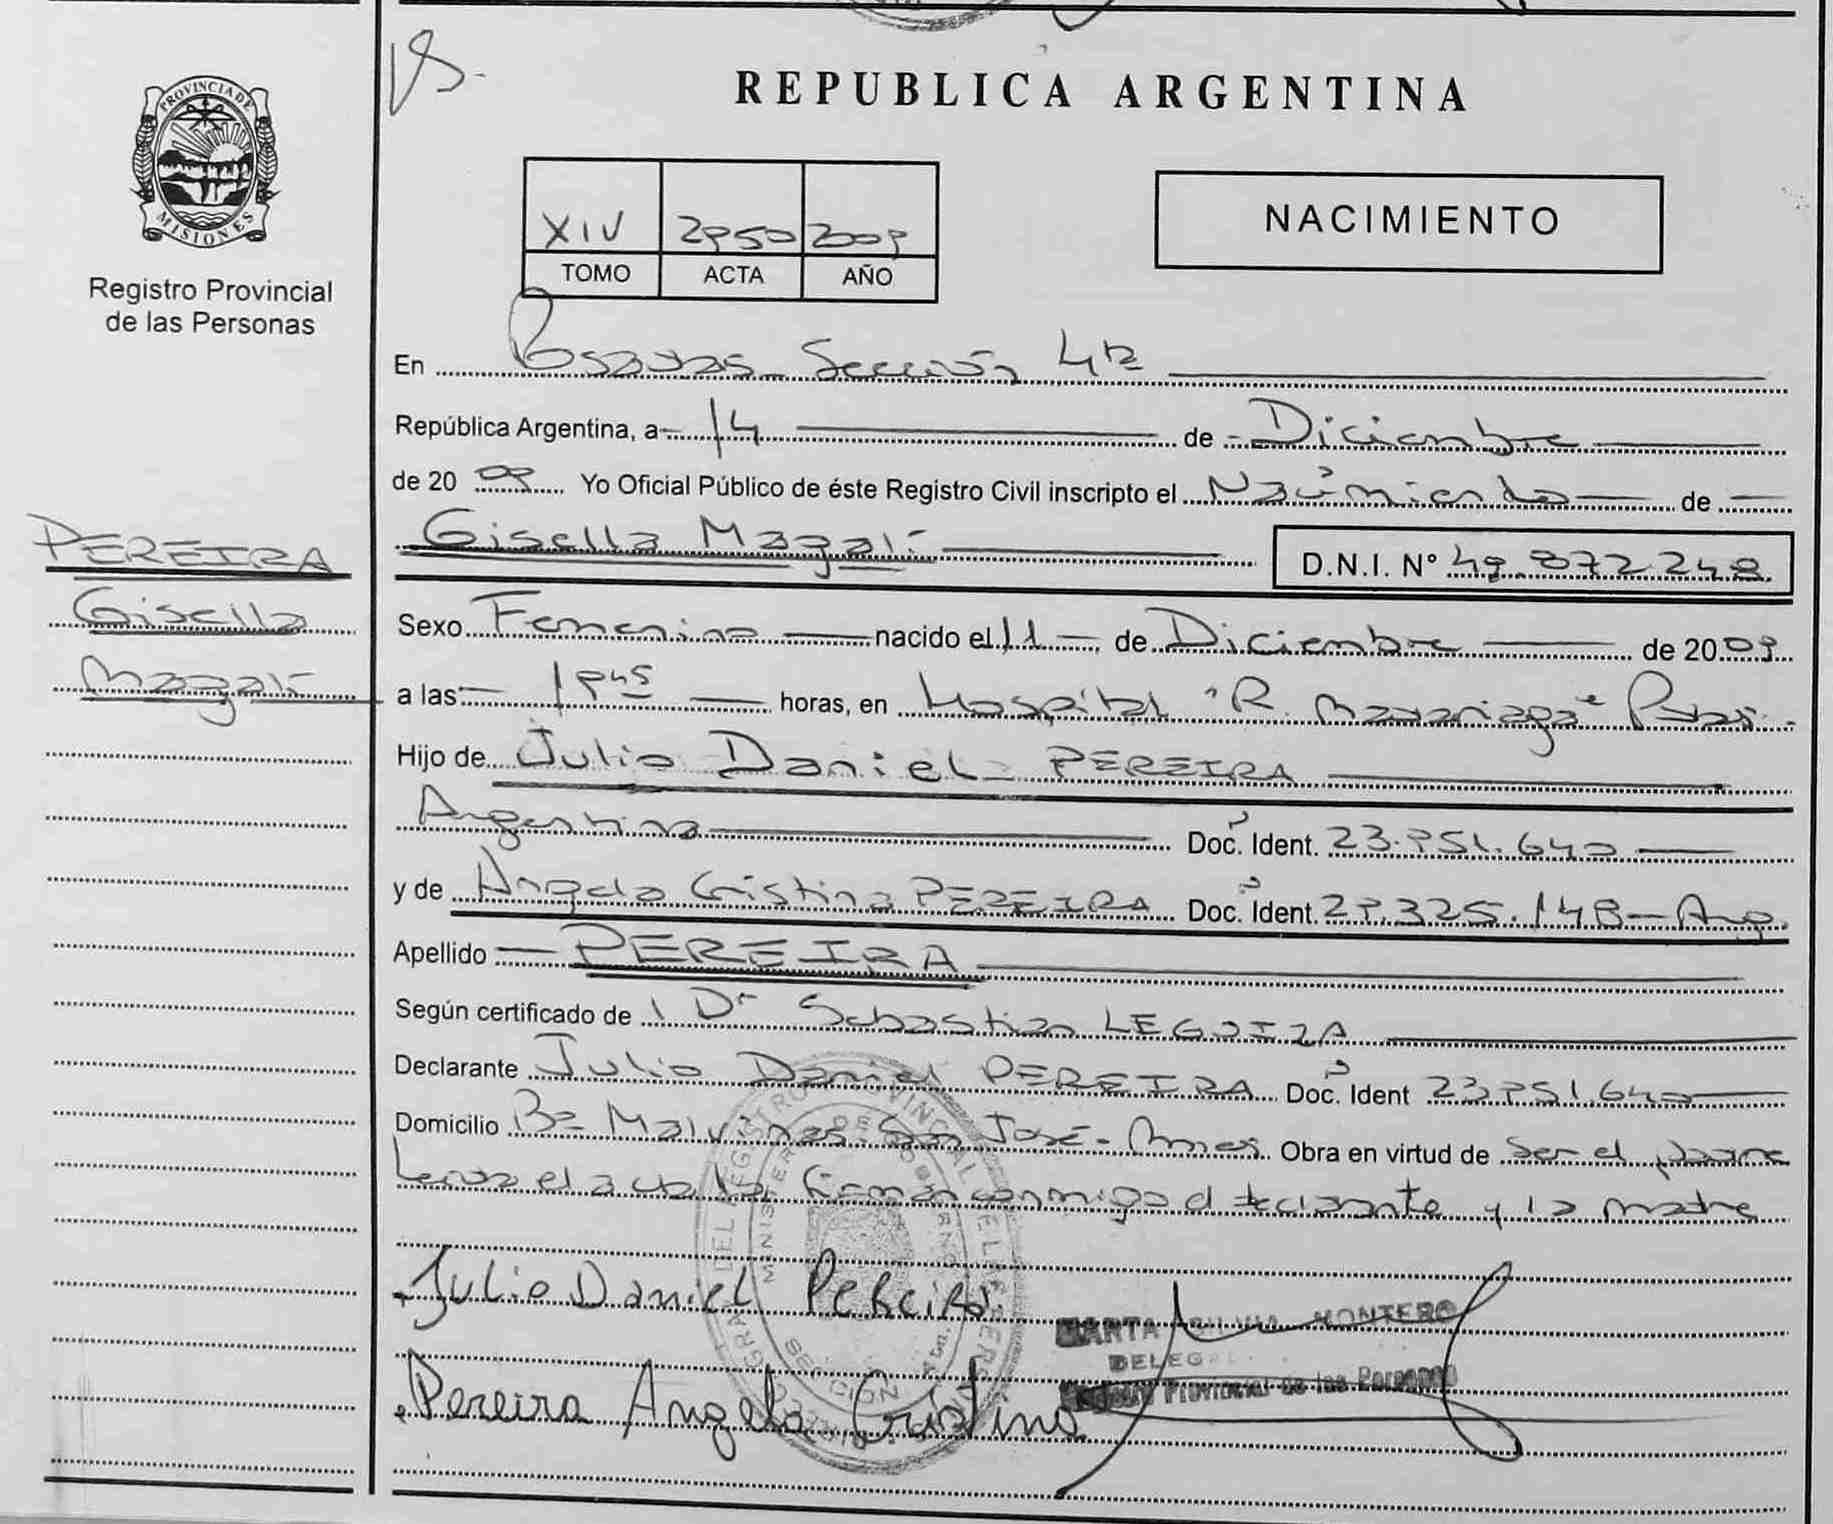 PROVINCIA DE
MISIONES
Registro Provincial
de las Personas
PEREIRA
Gisella
Magalí
REPUBLICA ARGENTINA
NACIMIENTO
XIV 2950 2009
TOMO ACTA AÑO
En Posadas Sección 4ta
República Argentina, a 14 de Diciembre
de 20 09 Yo Oficial Público de éste Registro Civil inscripto el Nacimiento de
Gisella Magalí D.N.I. N° 49.872.248
Sexo Femenino nacido el 11 de Diciembre de 20 09
a las 1945 horas, en Hospital "R. Madariaga" Pdas.
Hijo de Julio Daniel PEREIRA
Argentino Doc. Ident. 23.951.640
y de Angela Cristina PEREIRA Doc. Ident. 29.325.148 - Arg.
Apellido PEREIRA
Según certificado de Dr Sebastian LEGUIZA
Declarante Julio Daniel PEREIRA Doc. Ident 23.951.640
Domicilio Bº Malvinas - San José - Obra en virtud de ser el padre
Leída el acta la firman conmigo el declarante y la madre
Julio Daniel Pereira
MARTA SILVIA MONTERO
DELEG
Registro Provincial de las Personas
Pereira Angela Cristina